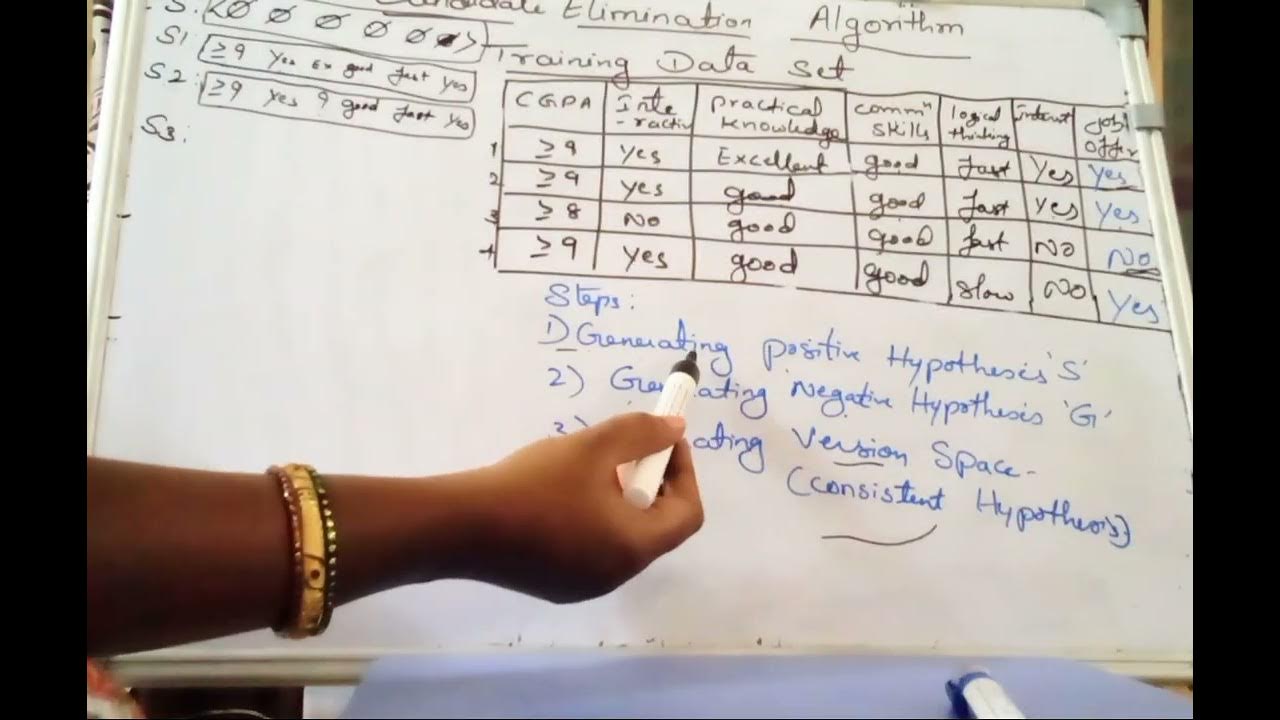 Candidate Elimination Algorithm
S: <Ø Ø Ø Ø Ø Ø>
S1: ≥9 Yes Ex good fast Yes
S2: ≥9 Yes ? good fast Yes
S3:
Training Data Set
CGPA Inte-ractive practical Knowledge commⁿ skills logical thinking interest Job offer
1 ≥9 Yes Excellent good fast Yes Yes
2 ≥9 Yes good good fast Yes Yes
3 ≥8 No good good fast No No
4 ≥9 Yes good good slow No Yes
Steps:
1) Generating positive Hypothesis 'S'
2) Generating Negative Hypothesis 'G'
3) ating Version Space-
(consistent Hypothesis)